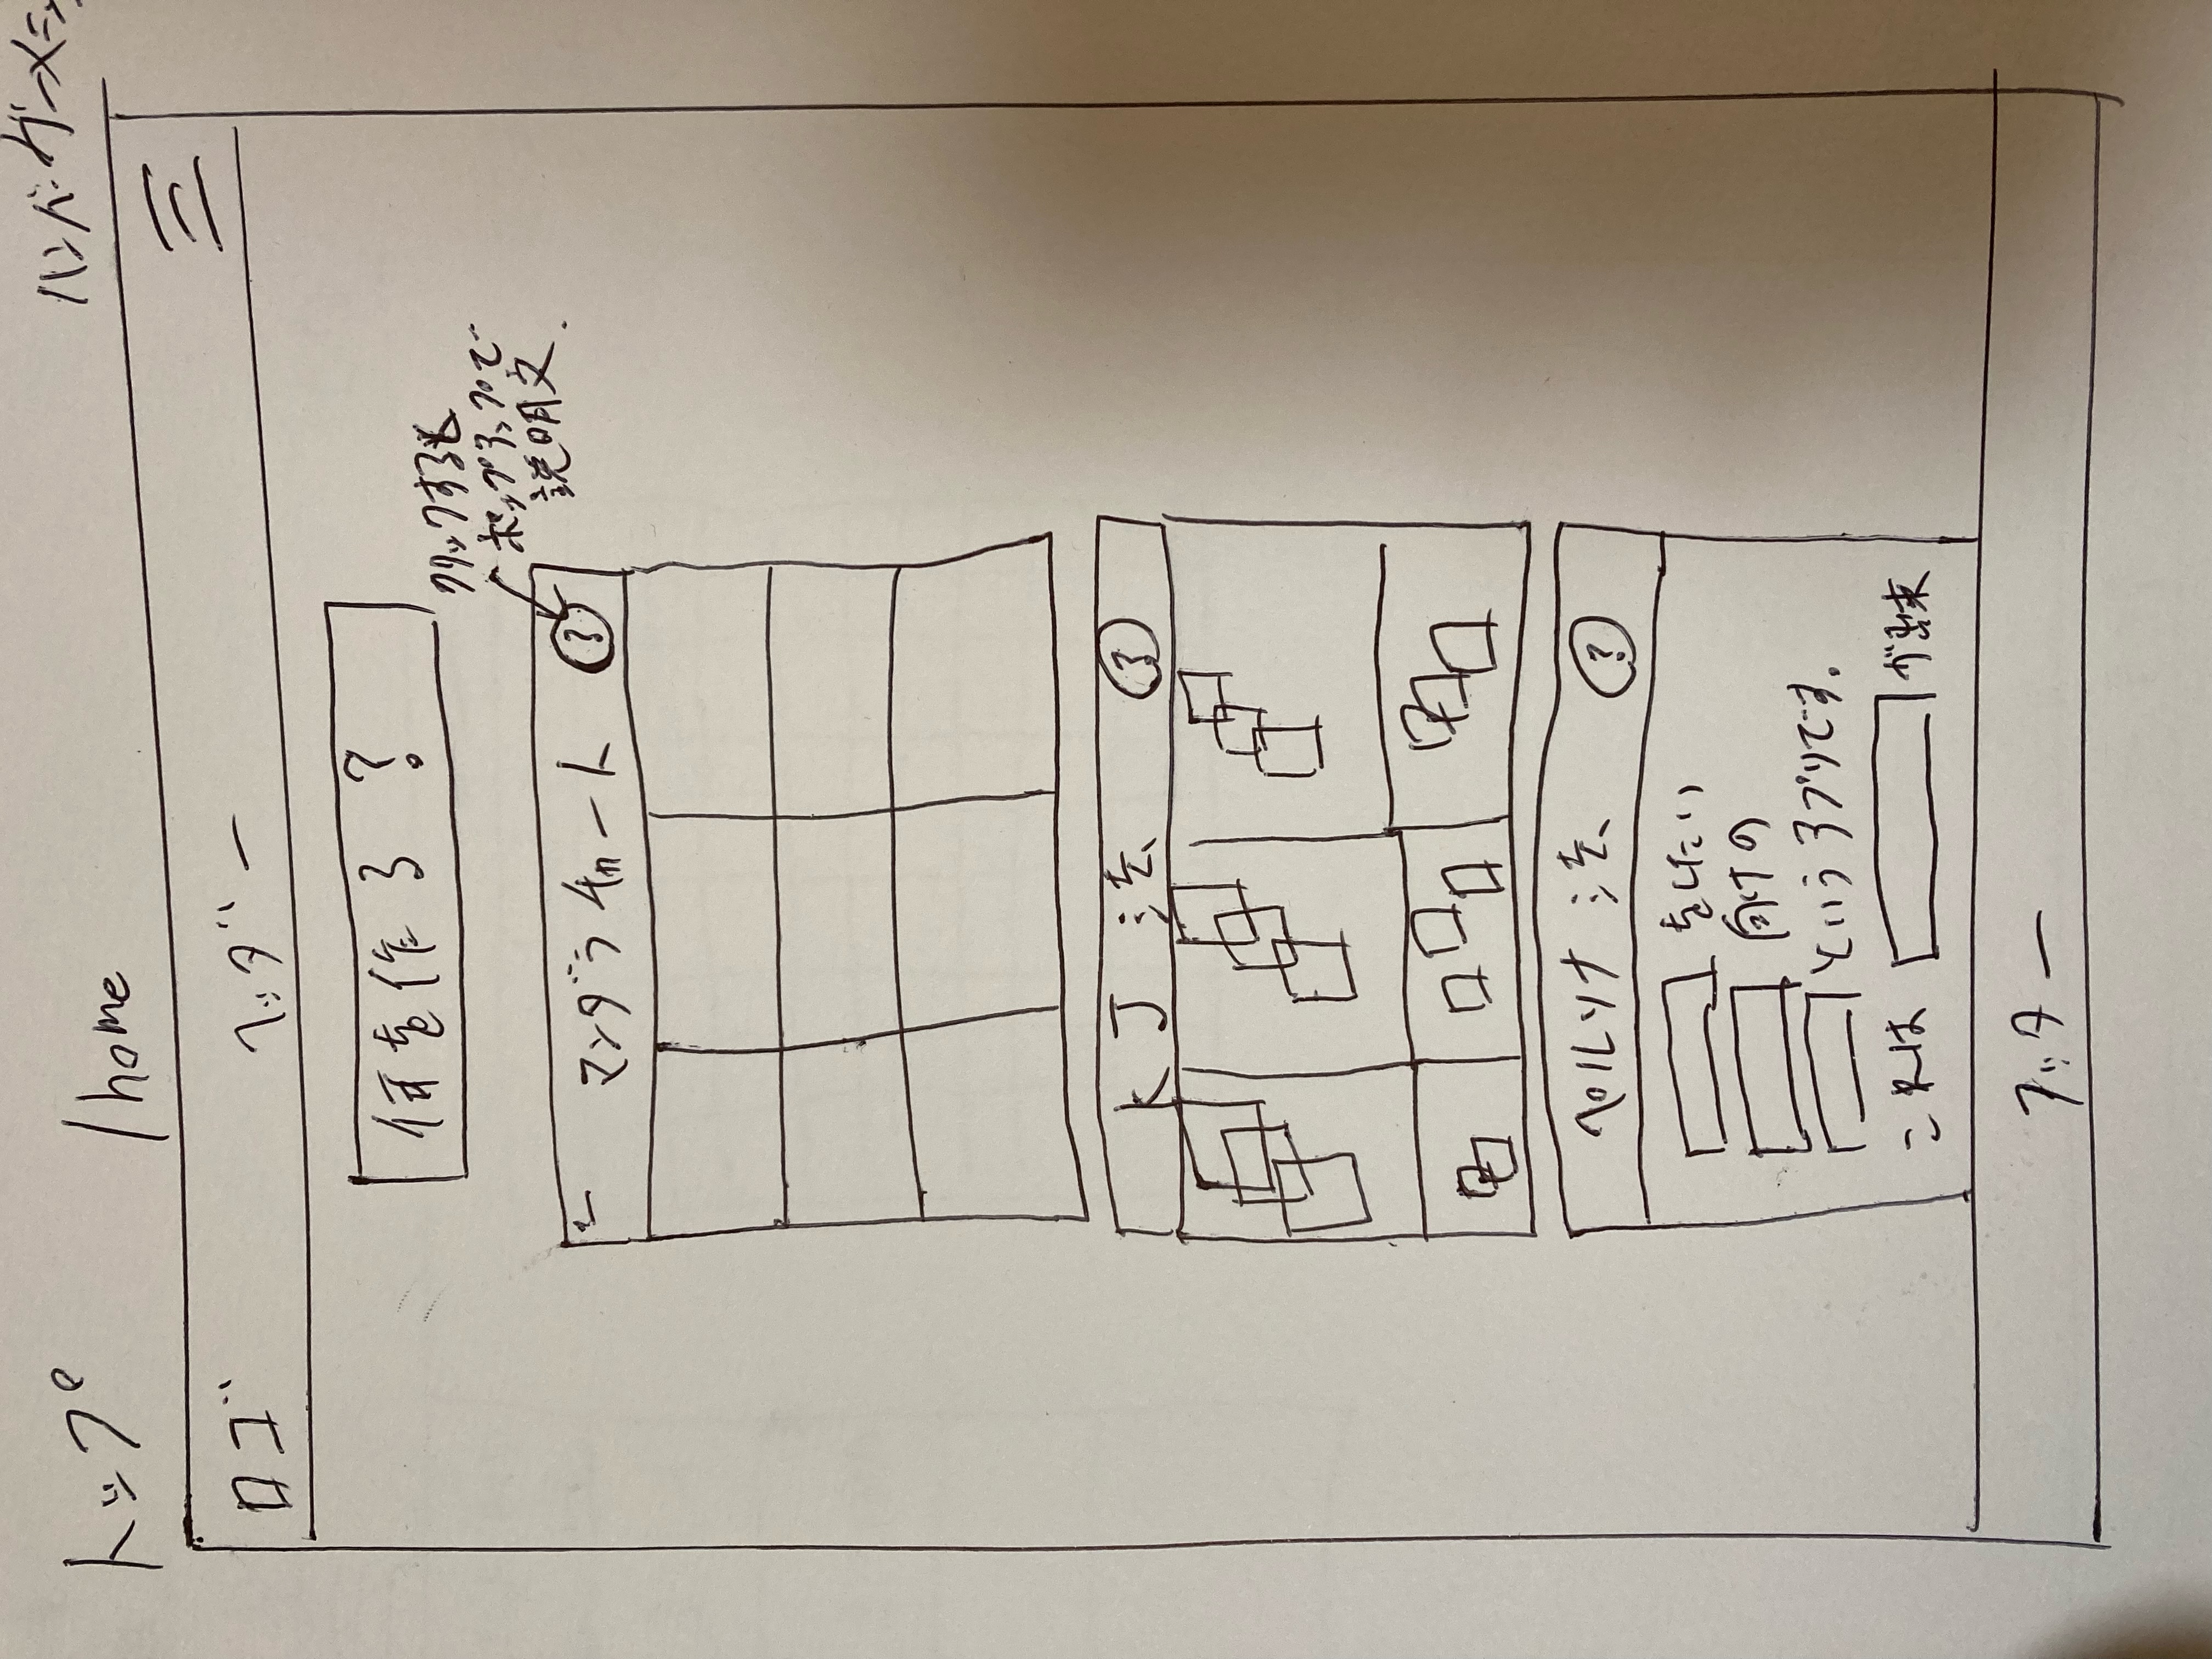 トップ
/home
ハンバーガーメニ
ロゴ
ヘッダー
何を作る?
クリックすると
ポップアップで
説明文.
マンダラチャート ?
KJ法 ?
ペルソナ法 ?
をしたい
向けの
というアプリです。
これは
が出来
フッター